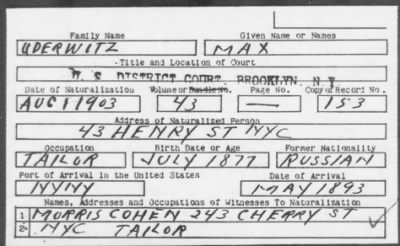 Family Name Given Name or Names
UDERWITZ MAX
Title and Location of Court
U. S. DISTRICT COURT, BROOKLYN, N.Y.
Date of Naturalization Volume or Bundle No. Page No. Copy of Record No.
AUG 1 1903 43 — 153
Address of Naturalized Person
43 HENRY ST NYC
Occupation Birth Date or Age Former Nationality
TAILOR JULY 1877 RUSSIAN
Port of Arrival in the United States Date of Arrival
NYNY MAY 1893
Names, Addresses and Occupations of Witnesses To Naturalization
1 MORRIS COHEN 243 CHERRY ST
2 NYC TAILOR